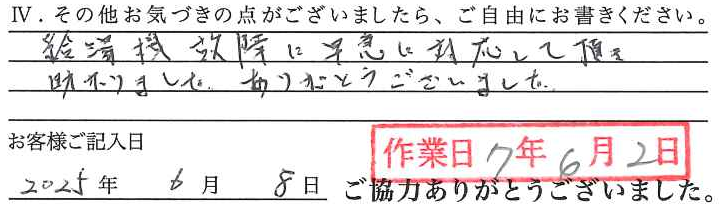 Ⅳ．その他お気づきの点がございましたら、ご自由にお書きください。
給湯機故障に早急に対応して頂き
助かりました。ありがとうございました。
お客様ご記入日
作業日 7年 6月 2日
2025年 6月 8日 ご協力ありがとうございました。